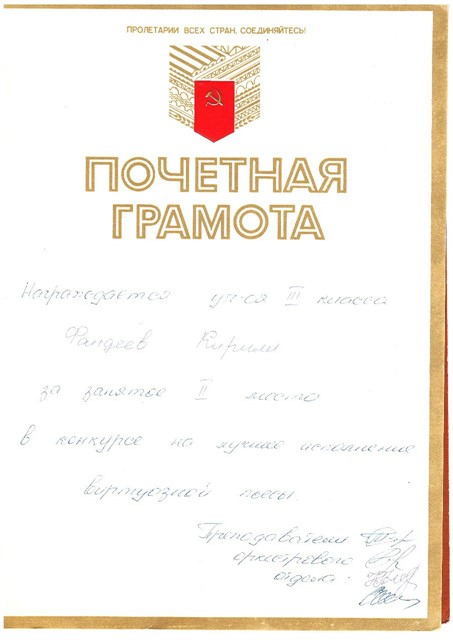 ПРОЛЕТАРИИ ВСЕХ СТРАН, СОЕДИНЯЙТЕСЬ!
ПОЧЕТНАЯ
ГРАМОТА
Награждается уч-ся III класса
Фандеев Кирилл
за занятое II место
в конкурсе на лучшее исполнение
виртуозной пьесы.
Преподаватели
оркестрового
отдела: